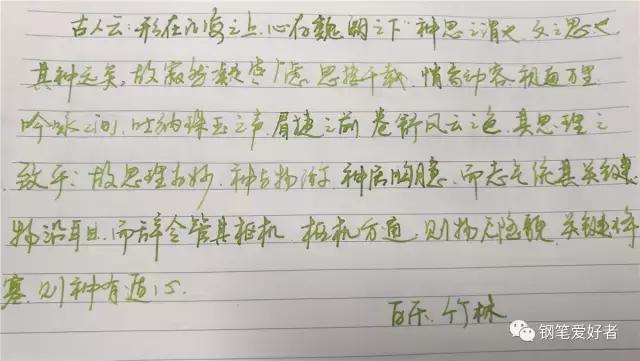 古人云:形在江海之上,心存魏阙之下 神思之谓也,文之思也
其神远矣,故寂然凝虑 思接千载,悄焉动容 视通万里
吟咏之间,吐纳珠玉之声 眉睫之前 卷舒风云之色,其思理之
致乎:故思理为妙,神与物游 神居胸臆,而志气统其关键
物沿耳目,而辞令管其枢机 枢机方通,则物无隐貌,关键将
塞,则神有遁心.
竹林
钢笔爱好者